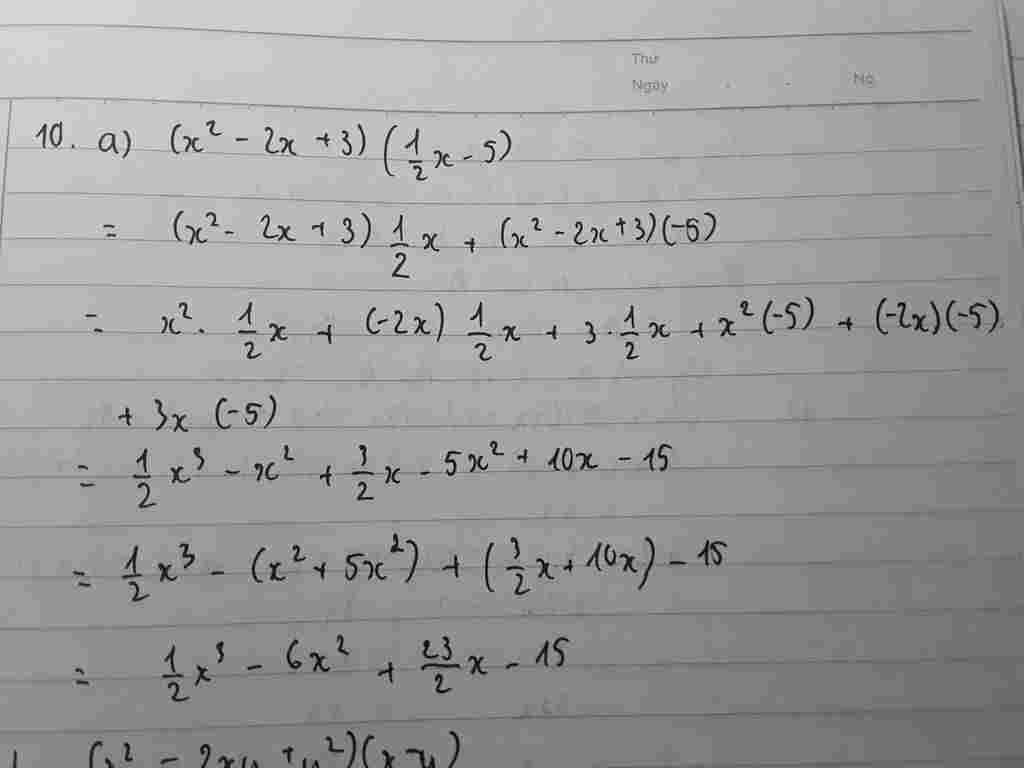 Thứ
Ngày . . No
10. a) (x² - 2x + 3) (1/2 x - 5)
= (x² - 2x + 3) 1/2 x + (x² - 2x + 3)(-5)
= x² · 1/2 x + (-2x) 1/2 x + 3 · 1/2 x + x² (-5) + (-2x)(-5)
+ 3x (-5)
= 1/2 x³ - x² + 3/2 x - 5x² + 10x - 15
= 1/2 x³ - (x² + 5x²) + (3/2 x + 10x) - 15
= 1/2 x³ - 6x² + 23/2 x - 15
(x² - 2xy + y²)(x - y)